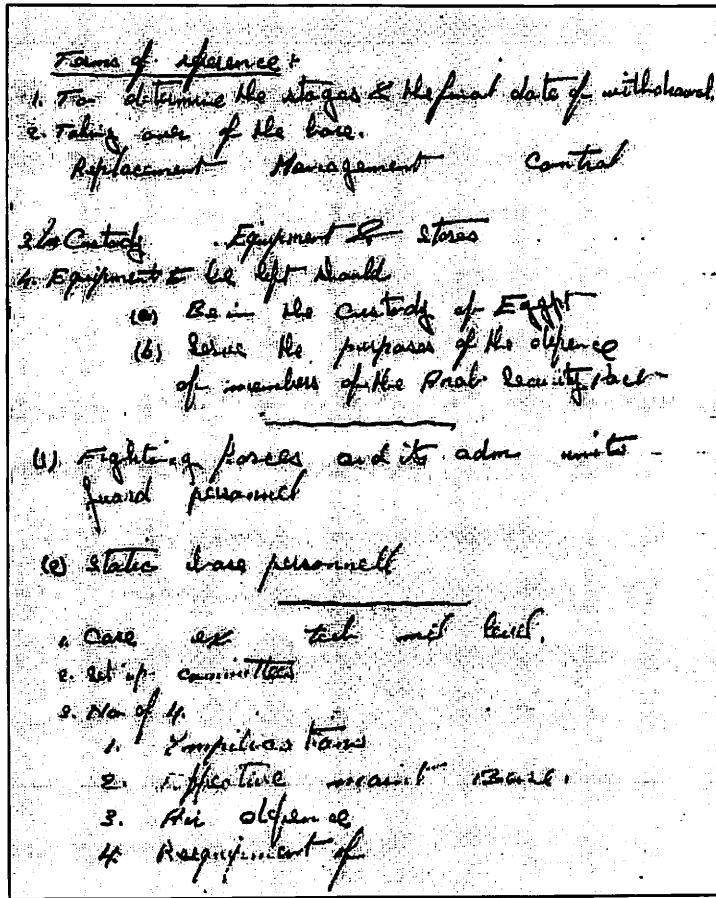 Terms of reference :
1. To determine the stages & the final date of withdrawal.
2. Taking over of the base.
Replacement Management Control
3. Custody Equipment & Stores
4. Equipment to be left should
(a) Be in the custody of Egypt
(b) Serve the purposes of the defence
of members of the Arab Security Pact
(1) Fighting forces and its adm units
Guard personnel
(2) Static base personnell
1. Care ex tech mil level.
2. Set up committees
3. No of 4.
1. Implications
2. Effective maint Base.
3. Air defence
4. Reequipment of